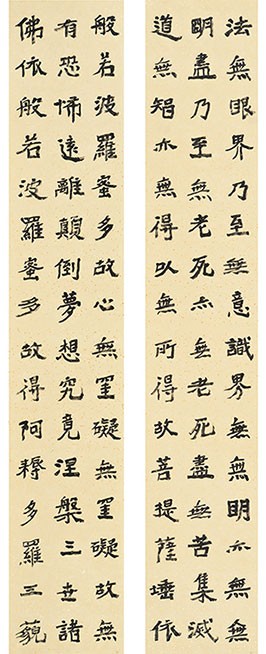 法無眼界乃至無意識界無無明亦無無
明盡乃至無老死亦無老死盡無苦集滅
道無智亦無得以無所得故菩提薩埵依
般若波羅蜜多故心無罣礙無罣礙故無
有恐怖遠離顛倒夢想究竟涅槃三世諸
佛依般若波羅蜜多故得阿耨多羅三藐